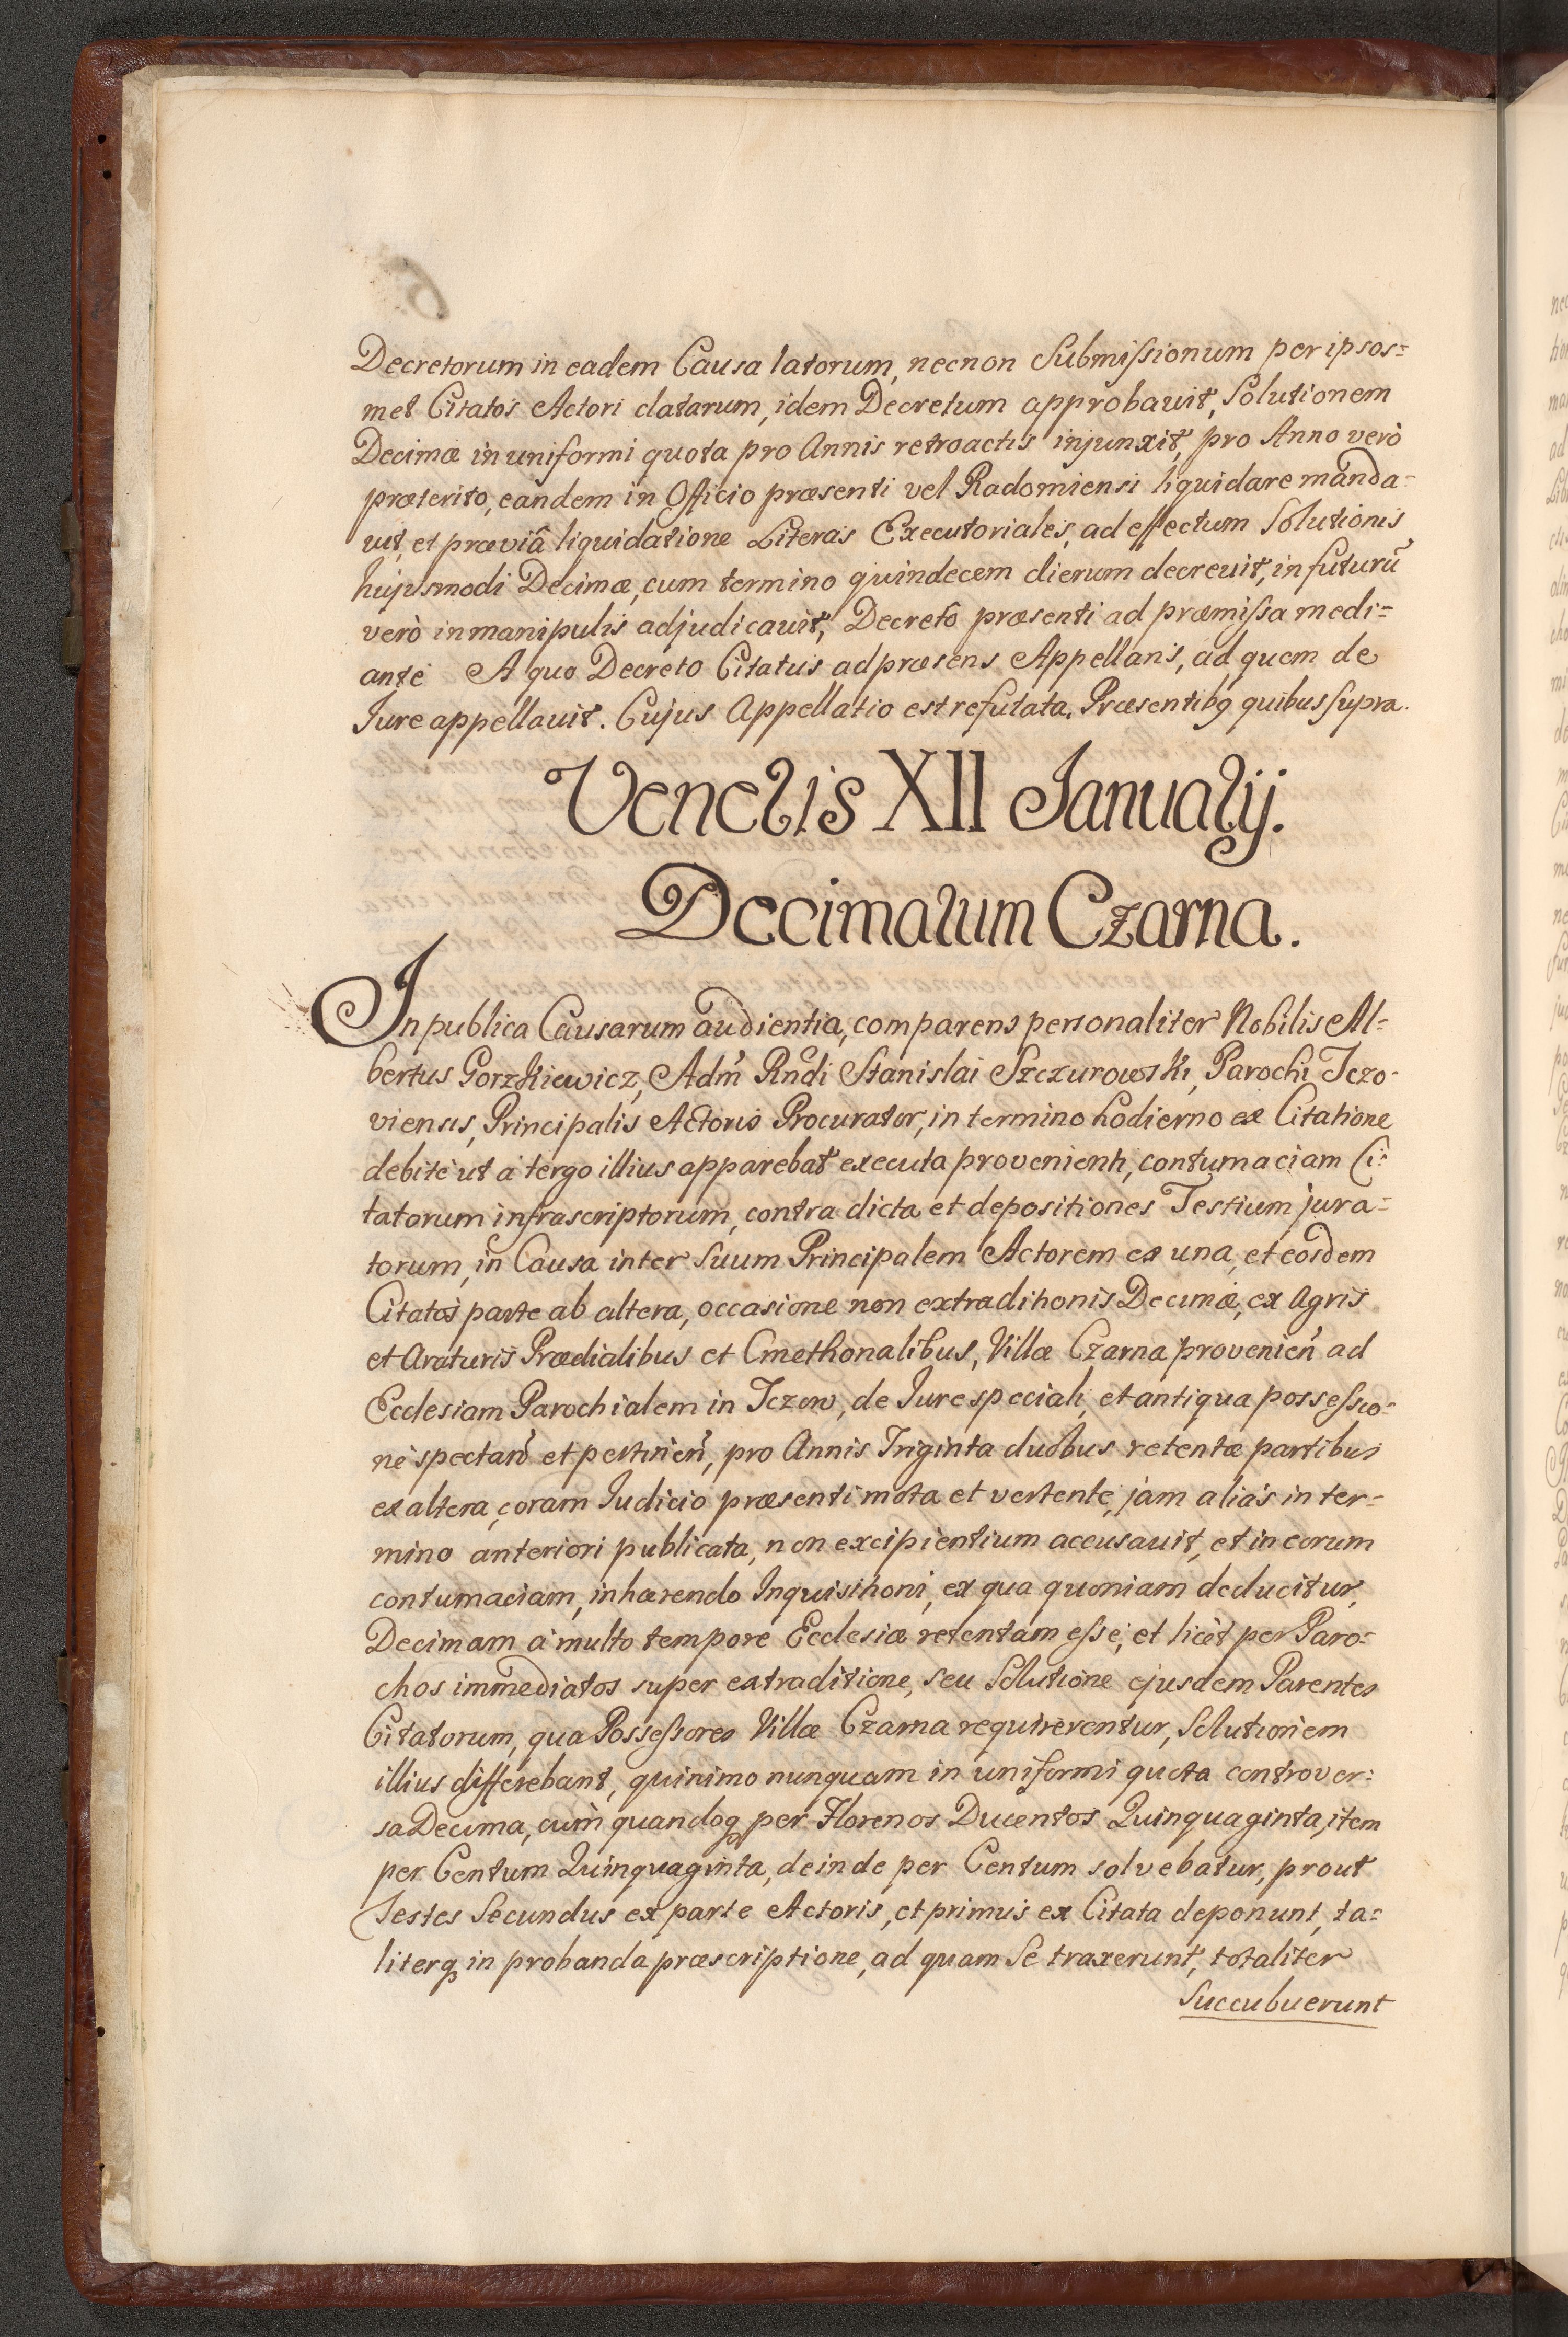 Decretorum in eadem Causa latorum, necnon Submissionum per ipsos=
met Citatos Actori datarum, idem Decretum approbavit, Solutionem
Decimæ in uniformi quota pro Annis retroactis injunxit, pro Anno verò
præterito, eandem in Officio præsenti vel Radomiensi liquidare manda=
vit, et præviâ liquidatione Literas Executoriales, ad effectum Solutionis
hujusmodi Decimæ, cum termino quindecem dierum decrevit, in futurū
verò in manipulis adjudicavit, Decreto præsenti ad præmissa medi=
ante A quo Decreto Citatus ad præsens Appellans, ad quem de
Iure appellavit. Cujus Appellatio est refutata. Præsentibq quibus supra.
Veneris XII Ianuarij.
Decimarum Czarna.
In publica Causarum audientia, comparens personaliter Nobilis Al=
bertus Gorzkiewicz, Adm̃ Rndi Stanislai Szczurowski, Parochi Jczo=
viensis, Principalis Actoris Procurator, in termino hodierno ex Citatione
debitè ut à tergo illius apparebat executa provenienti, contumaciam Ci=
tatorum infrascriptorum, contra dicta et depositiones Testium jura=
torum, in Causa inter Suum Principalem Actorem ex una, et eosdem
Citatos parte ab altera, occasione non extraditionis Decimæ, ex Agris
et Araturis Prædialibus et Cmethonalibus, Villæ Czarna provenien̄ ad
Ecclesiam Parochialem in Jczow, de Iure speciali, et antiqua possessio=
ne spectan̄ et pertinen̄, pro Annis Triginta duobus retentæ partibus
ex altera, coram Iudicio præsenti mota et vertente, jam alias in ter=
mino anteriori publicata, non excipientium accusavit, et in eorum
contumaciam, inhærendo Inquisitioni, ex qua quoniam deducitur,
Decimam à multo tempore Ecclesiæ retentam esse, et licèt per Paro=
chos immediatos super extraditione, seu Solutione ejusdem Parentes
Citatorum, qua Possessores Villæ Czarna requirerentur, Solutionem
illius differebant, quinimo nunquam in uniformi quota controver=
sa Decima, cùm quandoq per Florenos Ducentos Quinquaginta, item
per Centum Quinquaginta, deinde per Centum solvebatur, prout
Testes Secundus ex parte Actoris, et primus ex Citata deponunt, ta=
literq in probanda præscriptione, ad quam Se traxerunt, totaliter
Succubuerunt